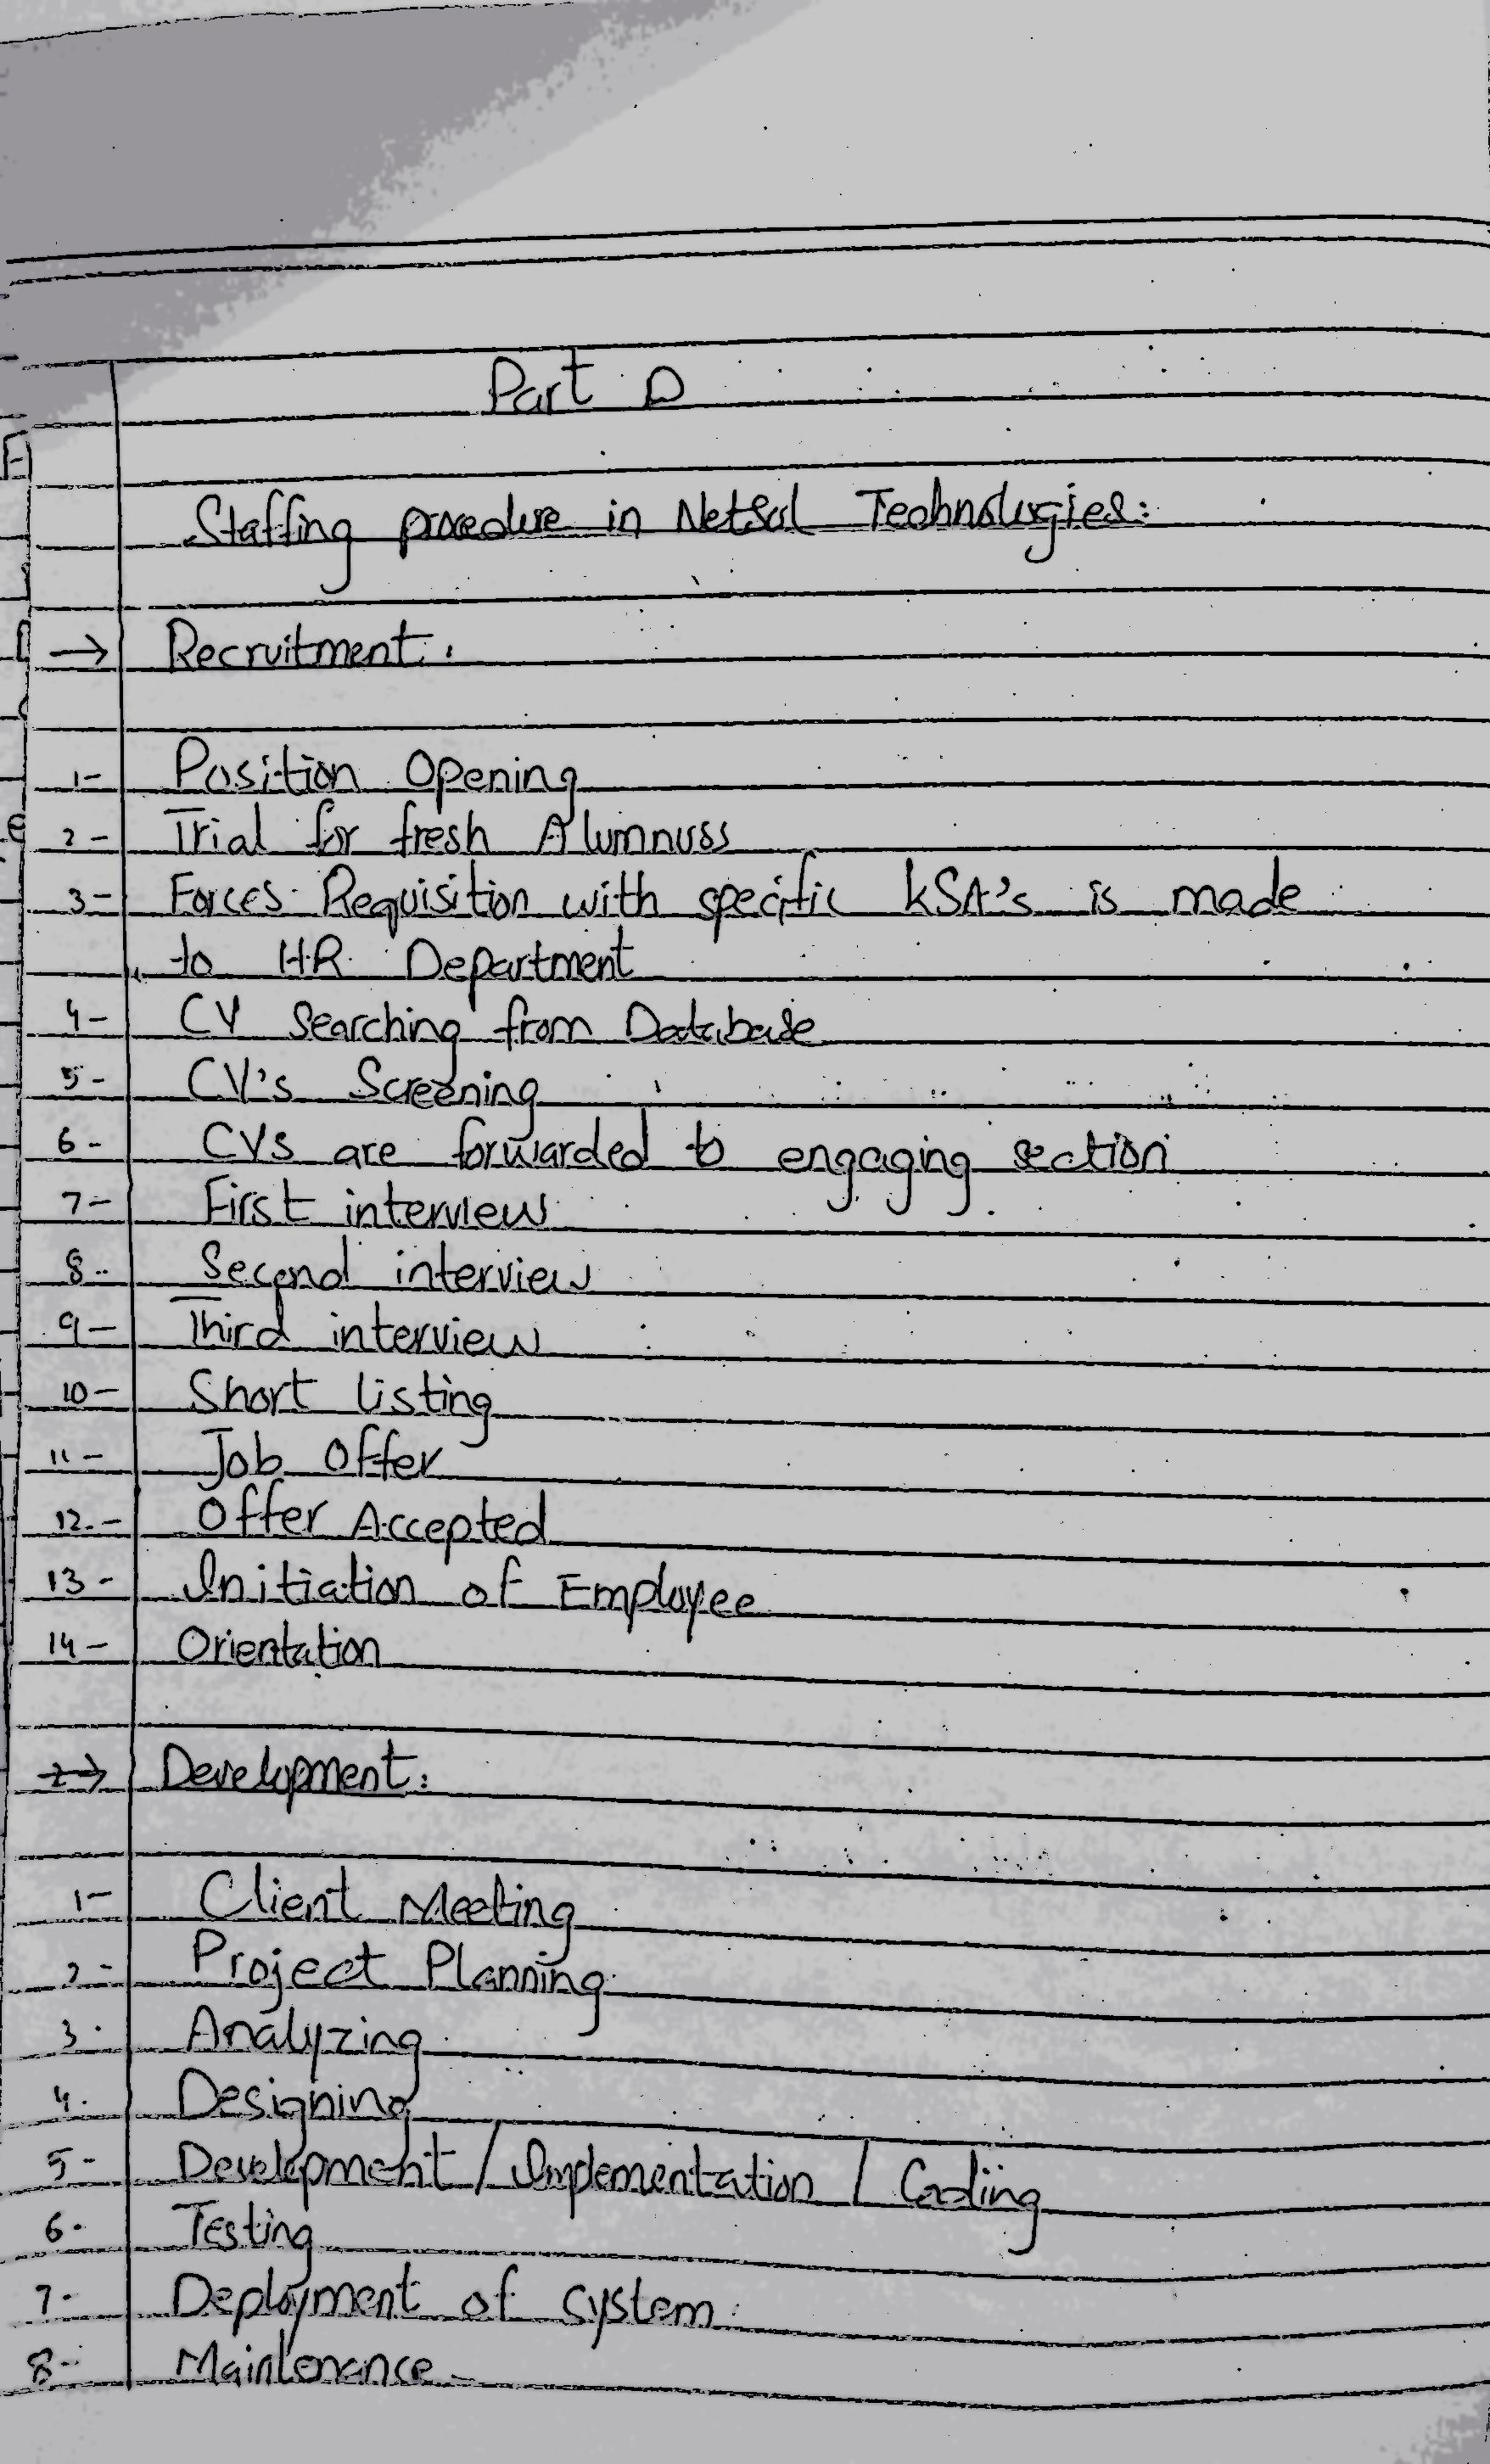 Part D
Staffing procedure in NetSol Technologies:
→ Recruitment:
1- Position Opening
2- Trial for fresh Alumnuss
3- Forces Requisition with specific KSA's is made
to HR Department
4- CV Searching from Database
5- CV's Screening
6- CVs are forwarded to engaging section
7- First interview
8- Second interview
9- Third interview
10- Short listing
11- Job Offer
12- Offer Accepted
13- Initiation of Employee
14- Orientation
→ Development:
1- Client Meeting
2- Project Planning
3- Analyzing
4. Designing
5- Development / Implementation / Coding
6. Testing
7. Deployment of system
8- Maintenance